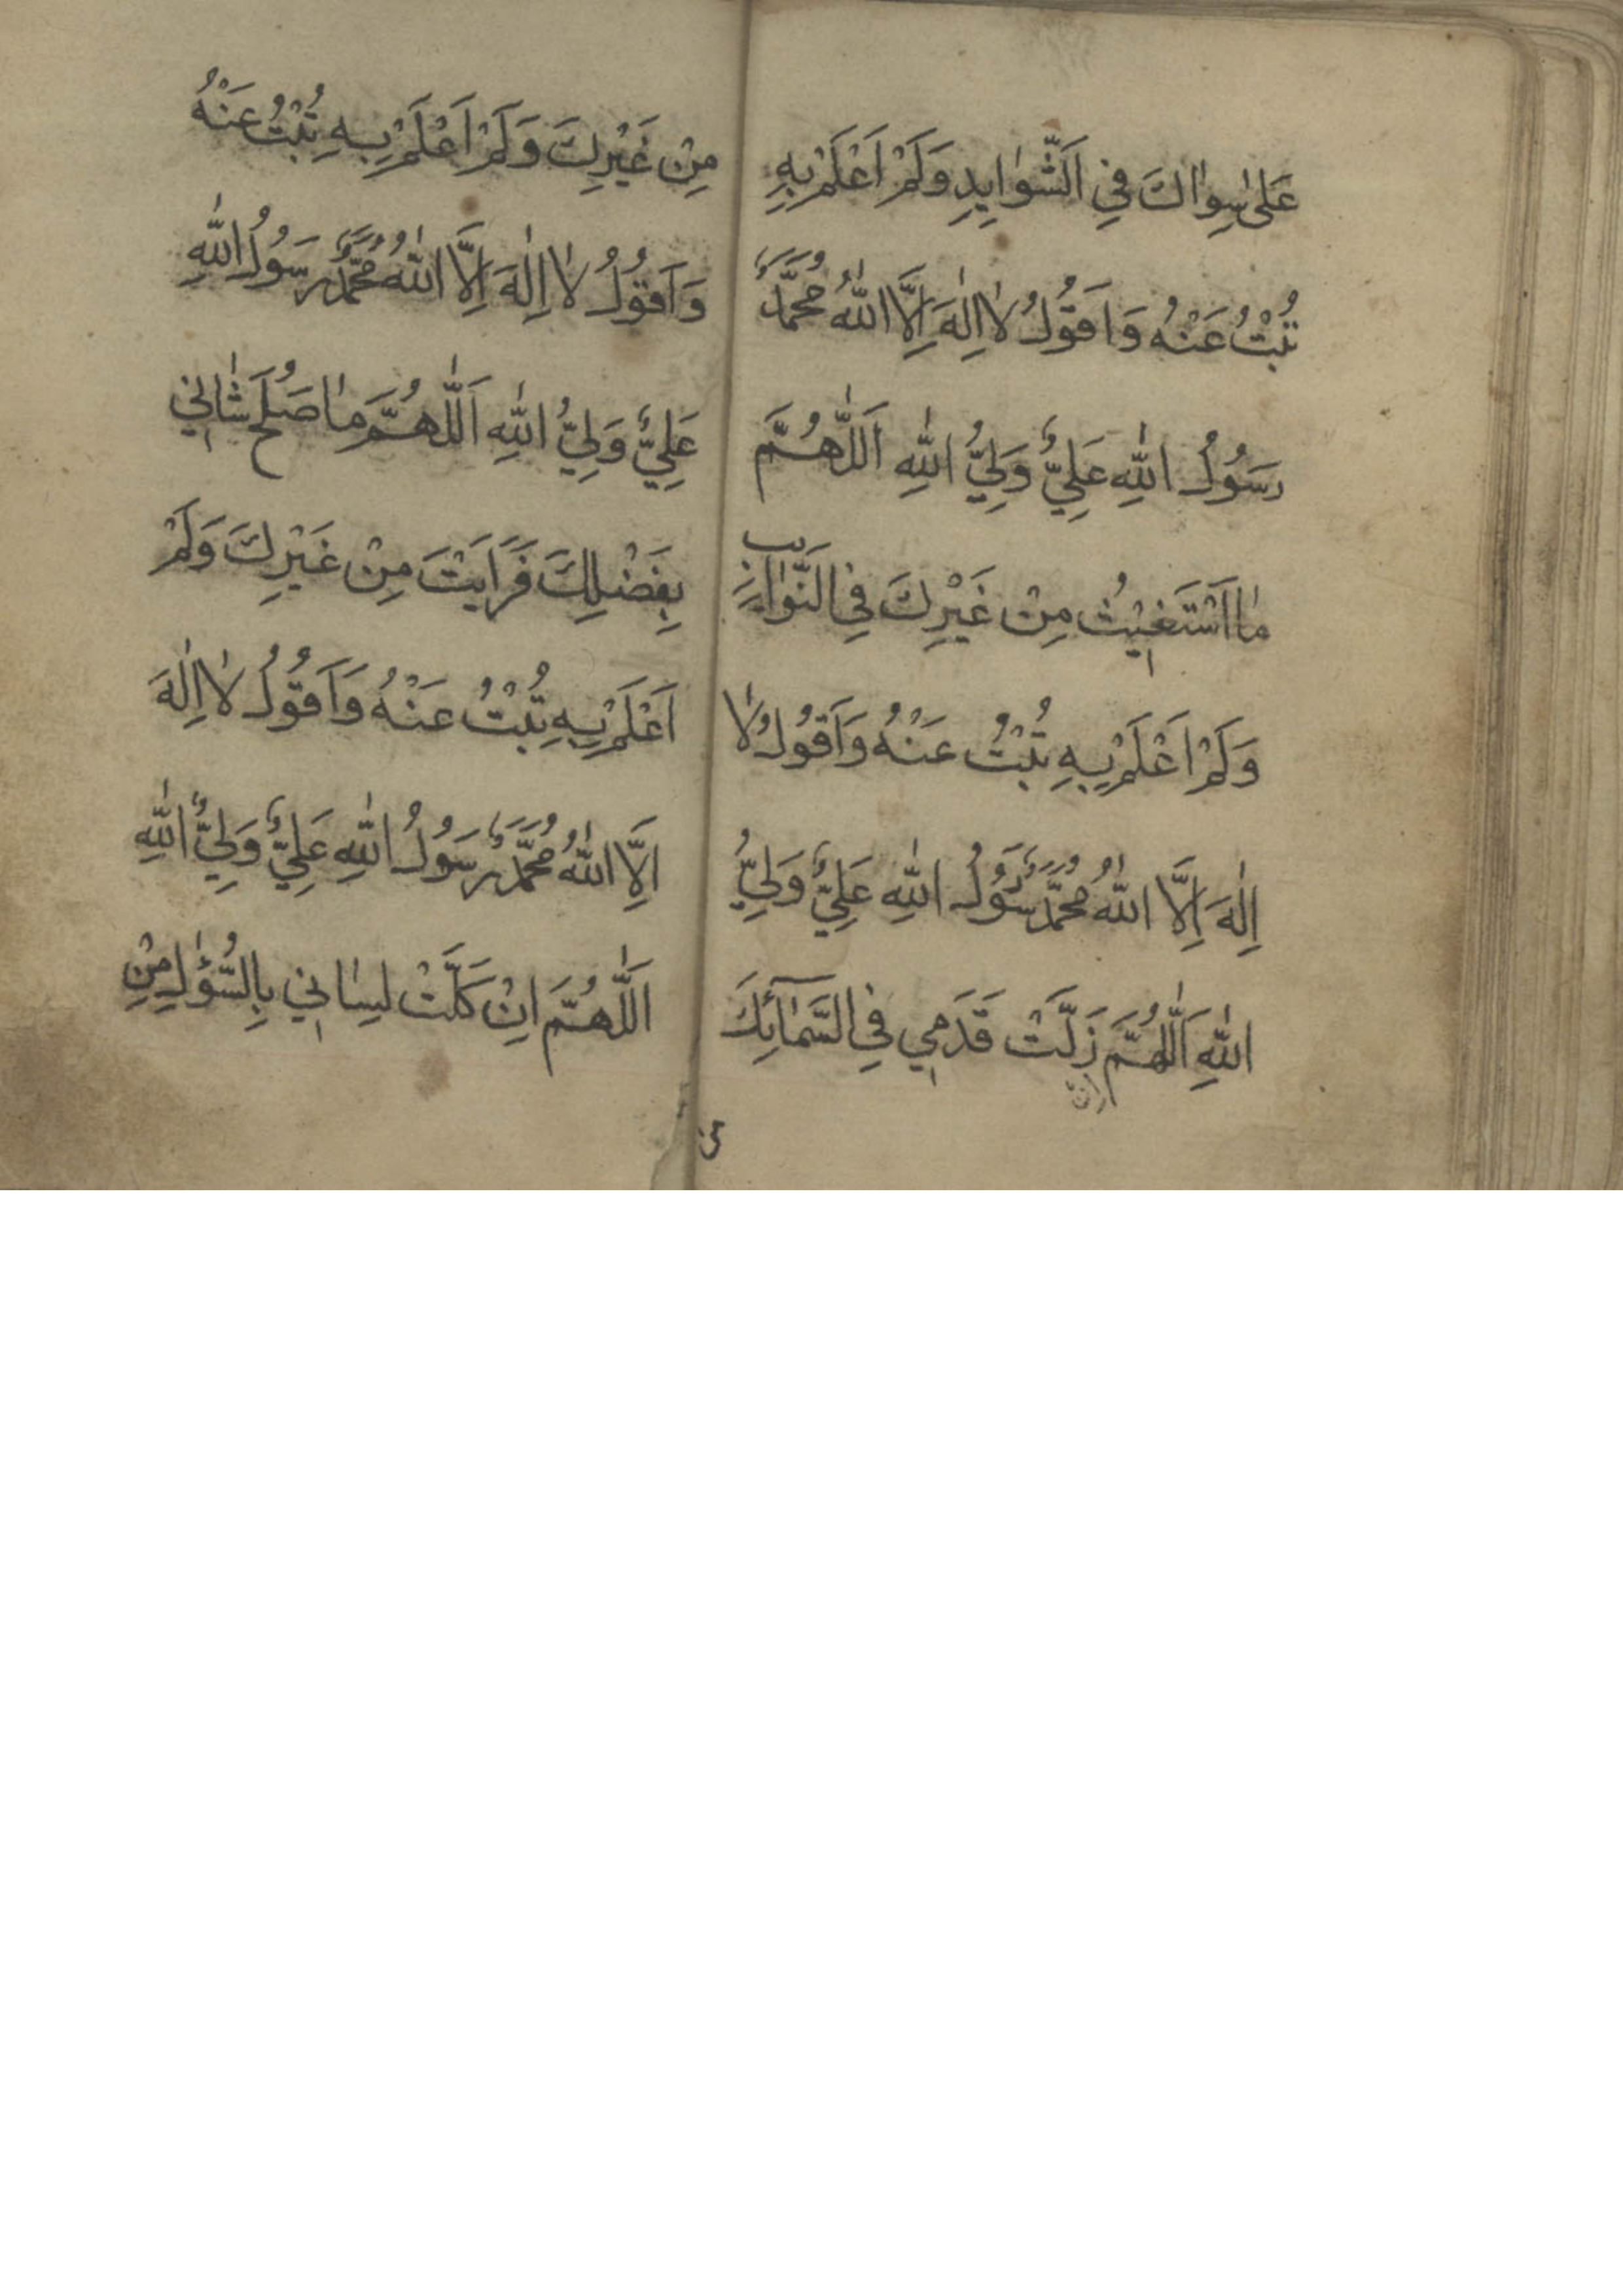 عَلىٰ سِوٰاكَ فِي اَلشَّوٰايِدِ وَلَمْ اَعْلَمْ بِهِ
تُبْتُ عَنْهُ وَاَقُولُ لٰا اِلٰهَ اِلَّا اللّٰهُ مُحَمَّدٌ
رَسُولُ اللّٰهِ عَلِيٌّ وَلِيُّ اللّٰهِ اَللّٰهُمَّ
مٰا اَسْتَغيٖثُ مِنْ غَيْرِكَ فِي النَّوٰايِبِ
وَلَمْ اَعْلَمْ بِهِ تُبْتُ عَنْهُ وَاَقُولُ لٰا
اِلٰهَ اِلَّا اللّٰهُ مُحَمَّدٌ رَسُولُ اللّٰهِ عَلِيٌّ وَلِيُّ
اللّٰهِ اَللّٰهُمَّ زَلَّتْ قَدَمي فِي السَّمٰآئِكَ
مِنْ غَيْرِكَ وَلَمْ اَعْلَمْ بِهِ تُبْتُ عَنْهُ
وَاَقُولُ لٰا اِلٰهَ اِلَّا اللّٰهُ مُحَمَّدٌ رَسُولُ اللّٰهِ
عَلِيٌّ وَلِيُّ اللّٰهِ اَللّٰهُمَّ مٰا صَلُحَ شٰاني
بِفَضْلِكَ فَرَاَيْتَ مِنْ غَيْرِكَ وَلَمْ
اَعْلَمْ بِهِ تُبْتُ عَنْهُ وَاَقُولُ لٰا اِلٰهَ
اِلَّا اللّٰهُ مُحَمَّدٌ رَسُولُ اللّٰهِ عَلِيٌّ وَلِيُّ اللّٰهِ
اَللّٰهُمَّ اِنْ كَلَّتْ لِسٰاني بِالسُّؤٰلِ مِنْ